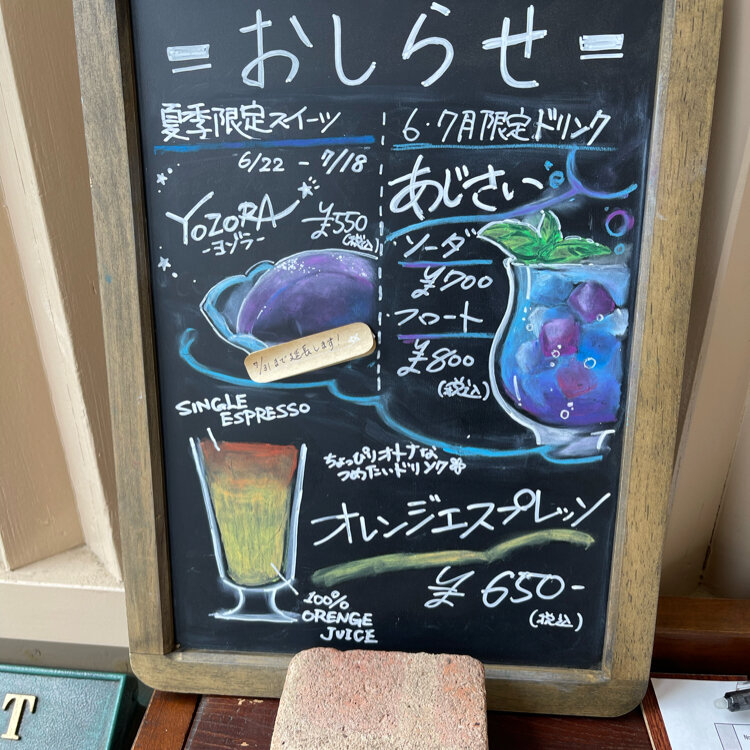 = おしらせ =
夏季限定スイーツ
6/22 - 7/18
YOZORA
-ヨゾラ-
¥550
(税込)
7/31まで延長します!
6・7月限定ドリンク
あじさい
ソーダ
¥700
フロート
¥800
(税込)
SINGLE
ESPRESSO
100%
ORENGE
JUICE
ちょっぴりオトナな
つめたいドリンク
オレンジエスプレッソ
¥650-
(税込)
T